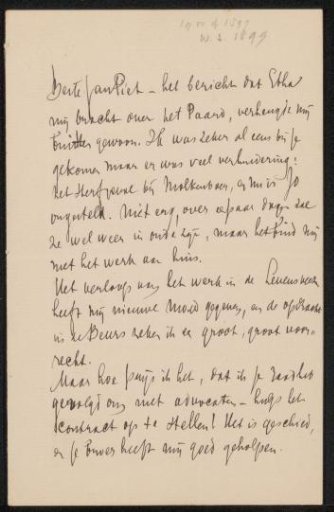 1899
Beste Jan Piet – het bericht dat Etha
mij bracht over het Paard, verheugde mij
buiten gewoon. Ik was zeker al eens bij je
gekomen maar er was veel verhindering:
het sterfgeval bij Molkenboer, en nu is Jo
ongesteld. Niet erg, over een paar dagen zal
ze wel weer in orde zijn, maar het bindt mij
met het werk aan huis.
Het verloop van het werk in de Levens
heeft mij nieuwe moed gegeven, en de opdracht
in de Beurs reken ik een groot, groot voor-
recht.
Maar hoe prijs ik het, dat ik je raad heb
gevolgd om met advocaten – hulp het
contract op te stellen! Het is geschied,
en je broer heeft mij goed geholpen.